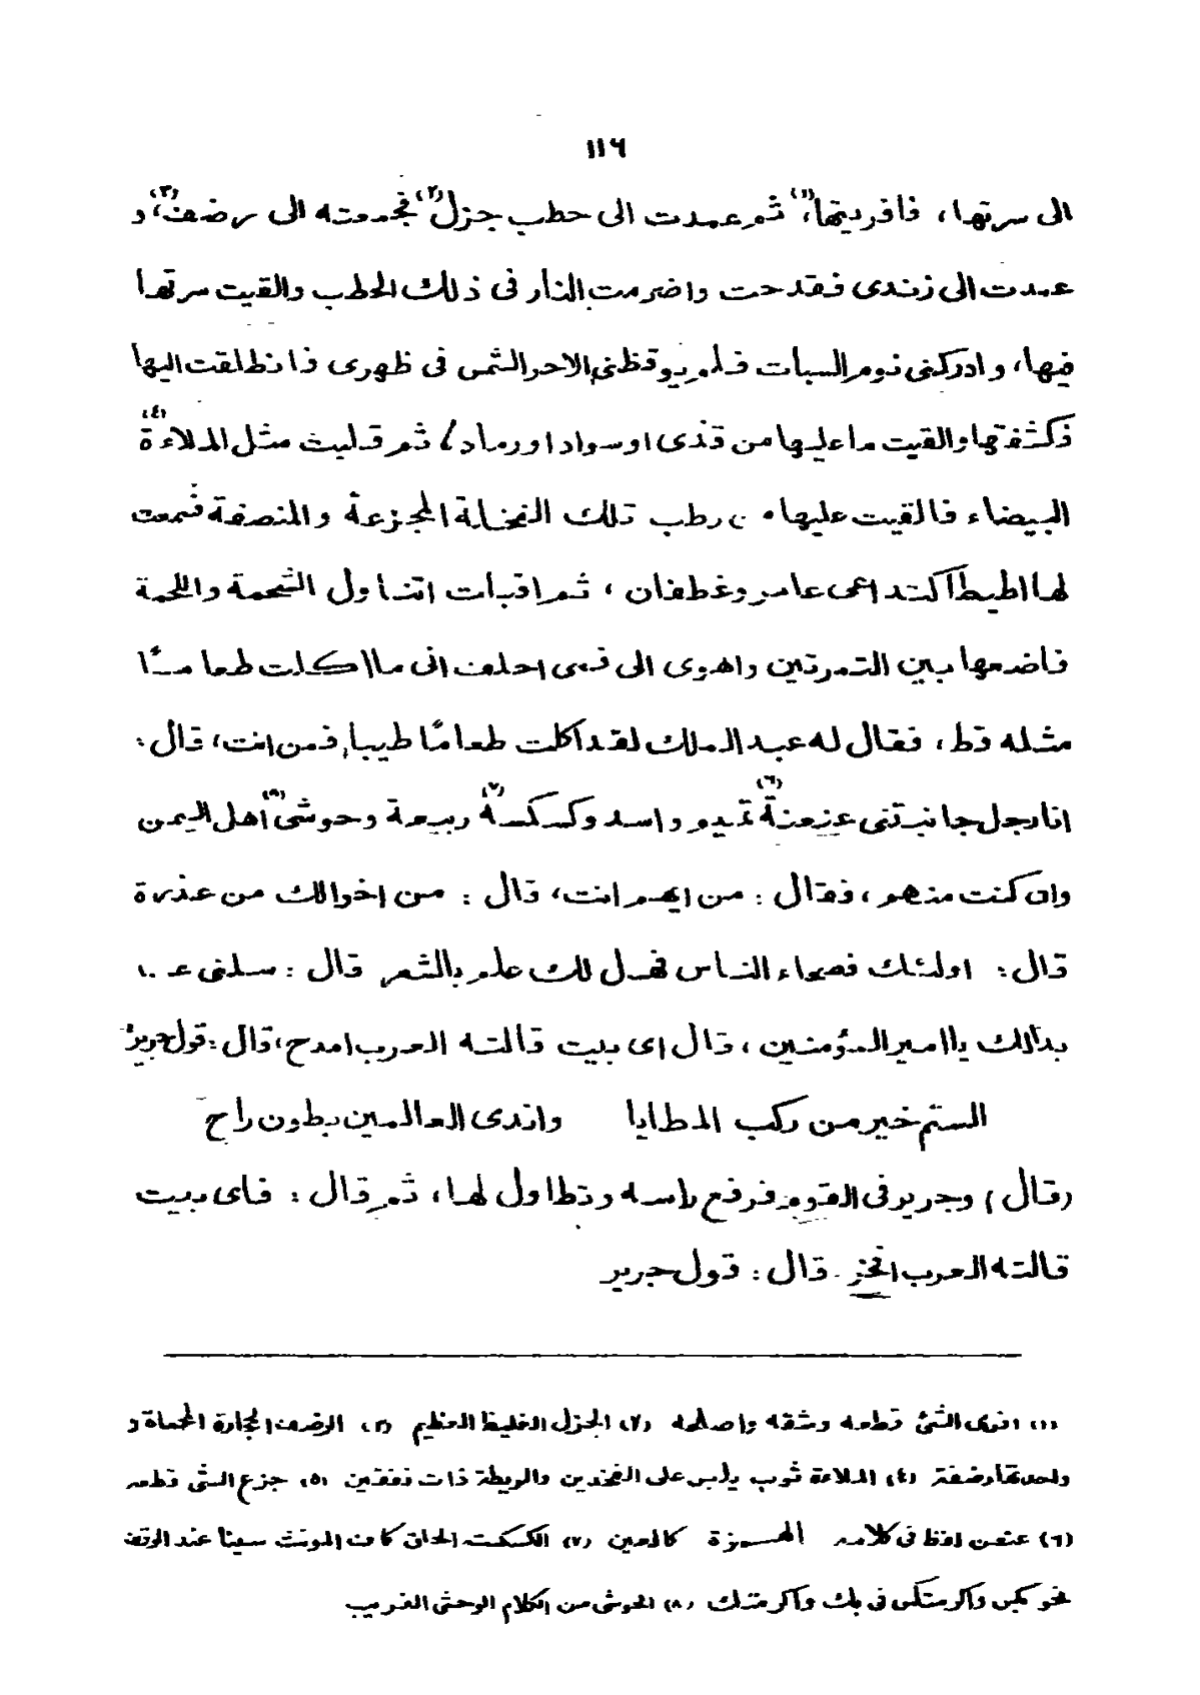 ١١٦
الى سرتها، فافريتها،(١) ثم عمدت الى حطب جزل(٢) فجمعته الى رضف،(٣) و
عمدت الى زندى فقدحت واضرمت النار فى ذلك الحطب والقيت سرتها
فيها، وادركنى نوم السبات فلم يوقظنى الاحر الشمس فى ظهرى فانطلقت اليها
فكشفتها والقيت ما عليها من قذى او سواد او رماد، ثم قلبت مثل الملاءة(٤)
البيضاء فالقيت عليها من رطب تلك النخلة المجزعة والمنصفة فسمعت
لها اطيطا كتداعى عامر وغطفان، ثم اقبلت اتناول الشحمة واللحمة
فاضعها بين التمرتين واهوى الى فمى احلف انى ما اكلت طعامًا
مثله قط، فقال له عبد الملك لقد اكلت طعامًا طيبا، فمن انت، قال:
انا رجل جانبتنى عنعنة(٦) تميم واسد وكسكسة(٧) ربيعة وحوشى(٨) اهل اليمن
وان كنت منهم، فقال: من ايهم انت، قال: من اخوالك من عذرة
قال: اولئك فصحاء الناس فهل لك علم بالشعر قال: سلنى عـ ..
بدالك يا امير المؤمنين، قال اى بيت قالته العرب امدح، قال: قول جرير
الستم خير من ركب المطايا واندى العالمين بطون راح
(قال) وجرير فى القوم فرفع راسه وتطاول لها، ثم قال: فاى بيت
قالته العرب افخر. قال: قول جرير
(١) افرى الشئ قطعه وشقه واصلحه (٢) الجزل الغليظ العظيم (٣) الرضف الحجارة المحماة و
واحدتها رضفة (٤) الملاءة ثوب يلبس على الفخذين والريطة ذات لفقين (٥) جزع الشى قطعه
(٦) عنعن لفظ فى كلامه الهمزة كالعين (٧) الكسكسة الحاق كاف المونث سينا عند الوقف
نحو بكس واكرمتكس فى بك واكرمتك (٨) الحوشى من الكلام الوحشى الغريب